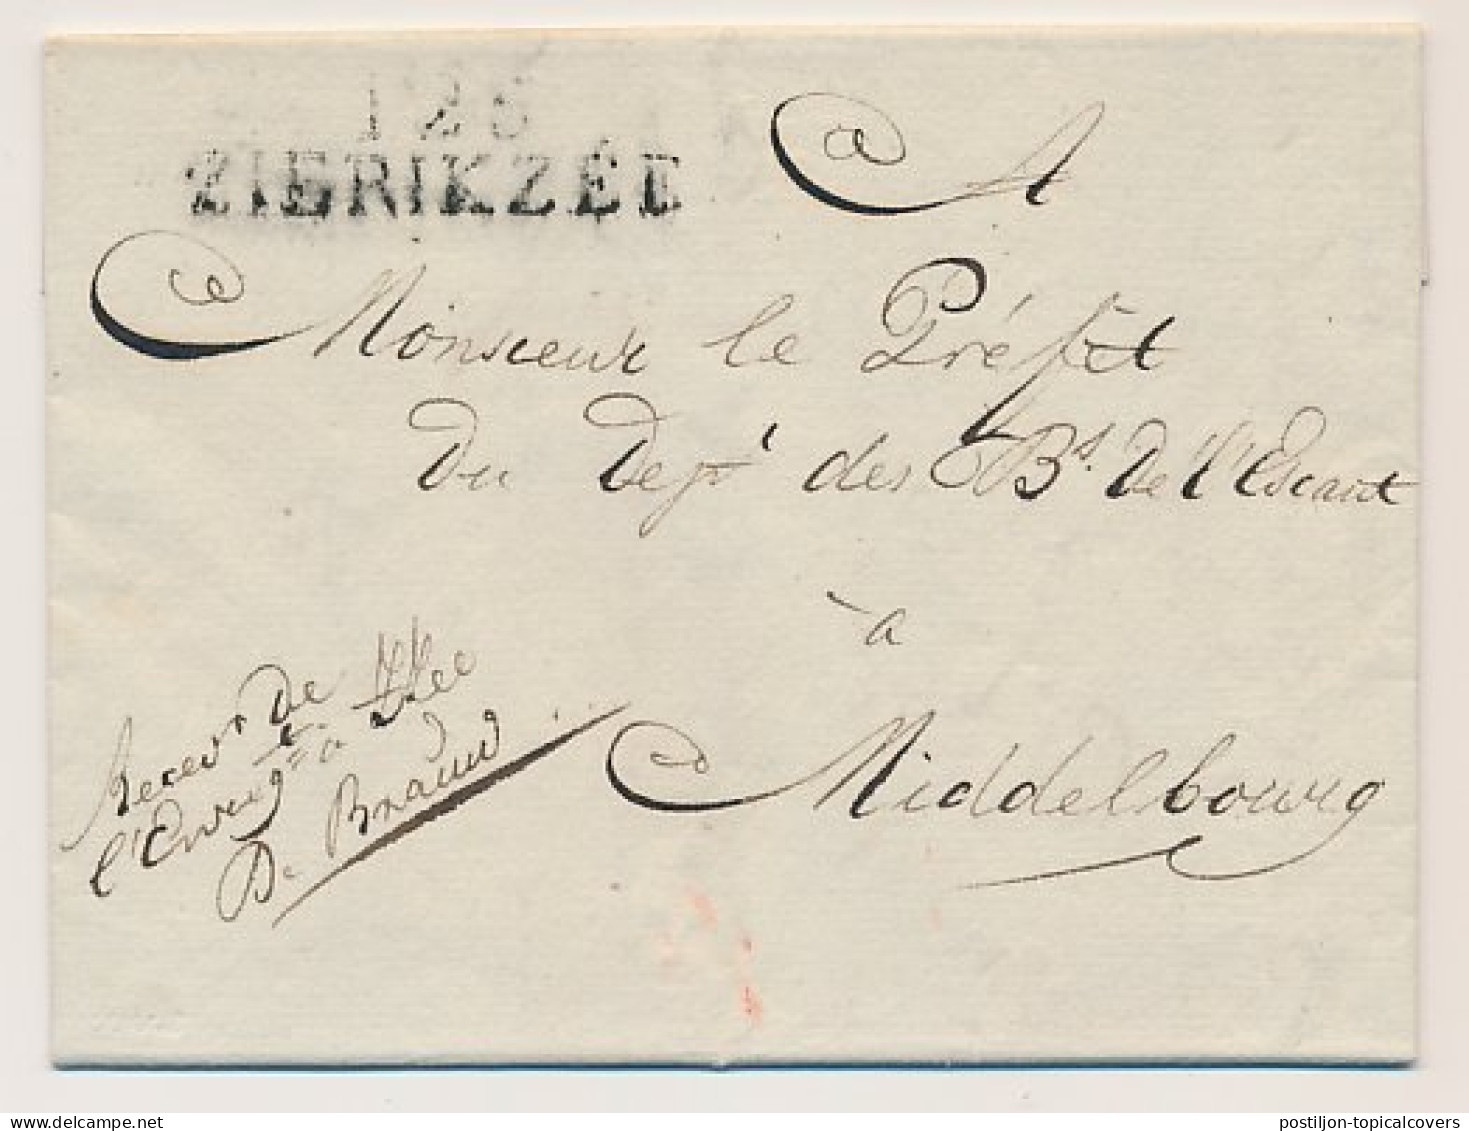 126
ZIERIKZÉE
A
Monsieur le Préfet
du Depᵗ des Bˢ. De l'Escaut
à
Middelbourg
Recevʳ De
l'Enregᵗ à ZZee
De Braauw
postiljon-topicalcovers